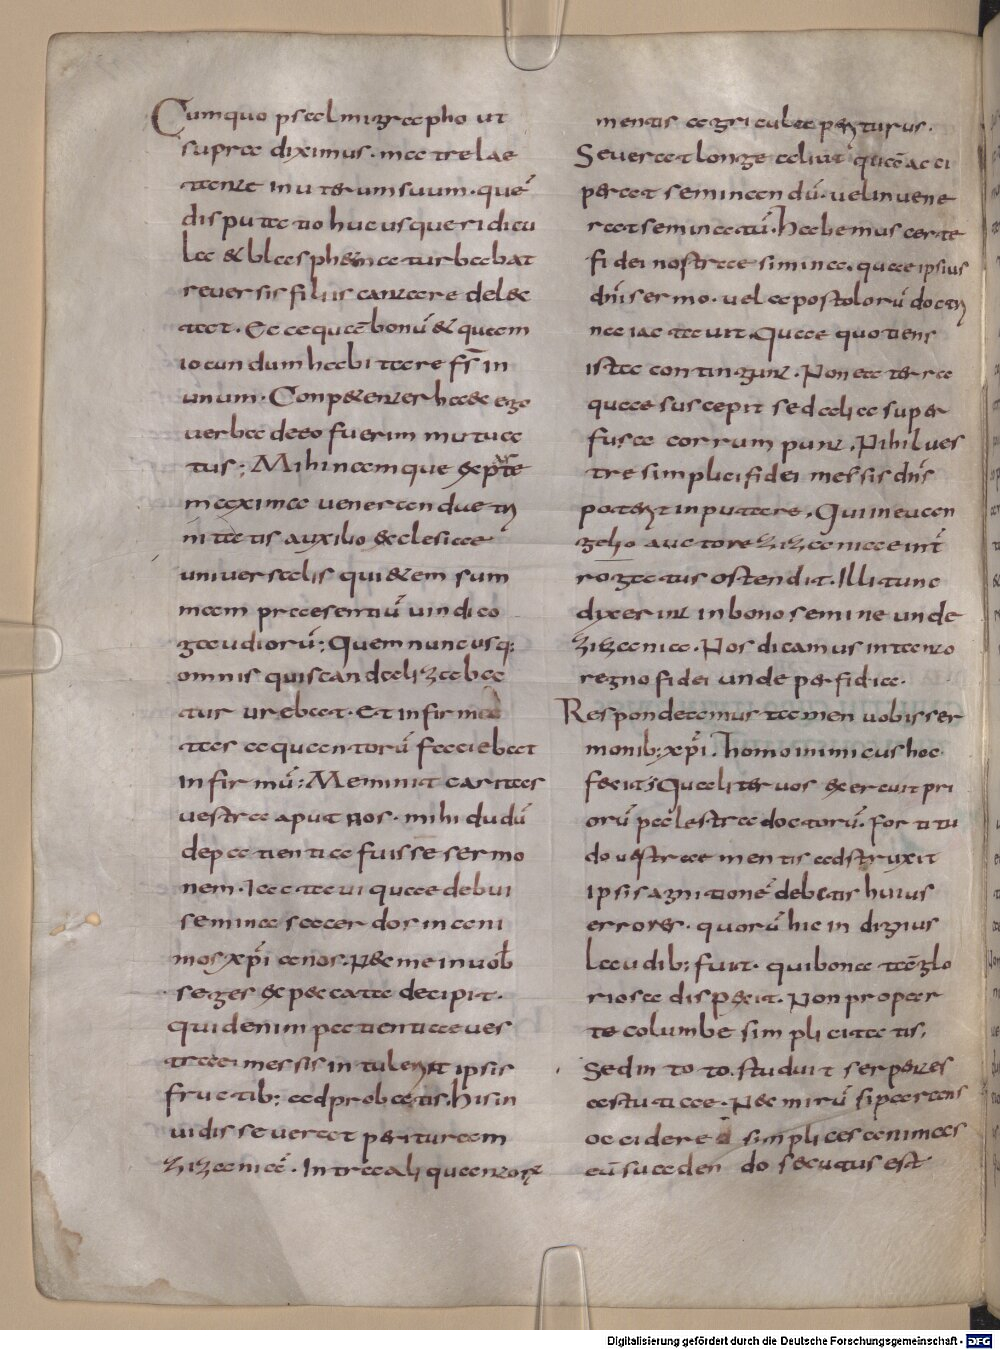 Cumquo psalmigrapho ut
supra diximus. matrelae
tante inuterum suum. que᷄
disputatio hucusque ridicu
la & blasph&mia turbabat
reuersis filiis cantare del&c
tat. Ecce qua᷄ bonu᷄ & quam
iocundum habitare frs̄ in
unum. Conp&enter ha&c ergo
uerba deeo fuerim mutua
tus; Mihi namque &
maxime uenerandue tri
nitatis auxilio & &clesiae
uniuersalis qui & em sum
mam praesentiu᷄ uindico
gaudioru᷄; Quem nunc usq;
omnis quis candaliz&aba
tur urebat. Et infirma
tas aquantoru᷄ faciebat
infirmu᷄; Meminit caritas
uestra aput nos. mihi dudu᷄
depatientia fuisse sermo
nem. Iactaui quae debui
semina sacerdos in cani
mos xp̄i anos. N&c me in uob̄
seges &c p&ccata decipit.
quidenim patientiae ues
trae messis intulerit ipsis
fructib; adprobatis. his in
uidis seuerat periturcam
zizanie᷄. Intra ali quantor
mentis agri culta periturus.
Seuerat longe aliut qua᷄ acci
perat seminandu᷄. uel inuene
rat seminatu᷄. habemus certe
fidei nostrae semina. quae ipsius
dn̄i sermo. uel apostoloru᷄ doctri
na iactauit. Quae quotiens
ista contingunt. Non ea terra
quae suscepit sed alia super
fusa corrumpunt. Nihil ues
tre simplici fidei messis dn̄s
poterit inputare. Qui in euan
gelio auctore zizaniae int̄
rogatus ostendit. Illi tunc
dixerint in bono semine unde
zizania. Nos dicamus intanto
regno fidei unde perfidia.
Respondeamus tamen uobis ser
monib; xp̄i. homo inimicus hoc
fecit; Qualiter uos exercuit pri
oru᷄ palestra doctoru᷄. fortitu
do uestrae mentis adstruxit
ipsis agnitione᷄ debetis huius
erroris. quoru᷄ hic indignus
laudib; fuit. qui bona ta᷄ glo
riosa disp&xit. Non propter
te columbe simplicitatis.
Sed in toto. studuit serp&ntes
astutiae. N&c miru᷄ si partens
occidere simplices animas
eu᷄ suaden do secutus est
Digitalisierung gefördert durch die Deutsche Forschungsgemeinschaft - DFG